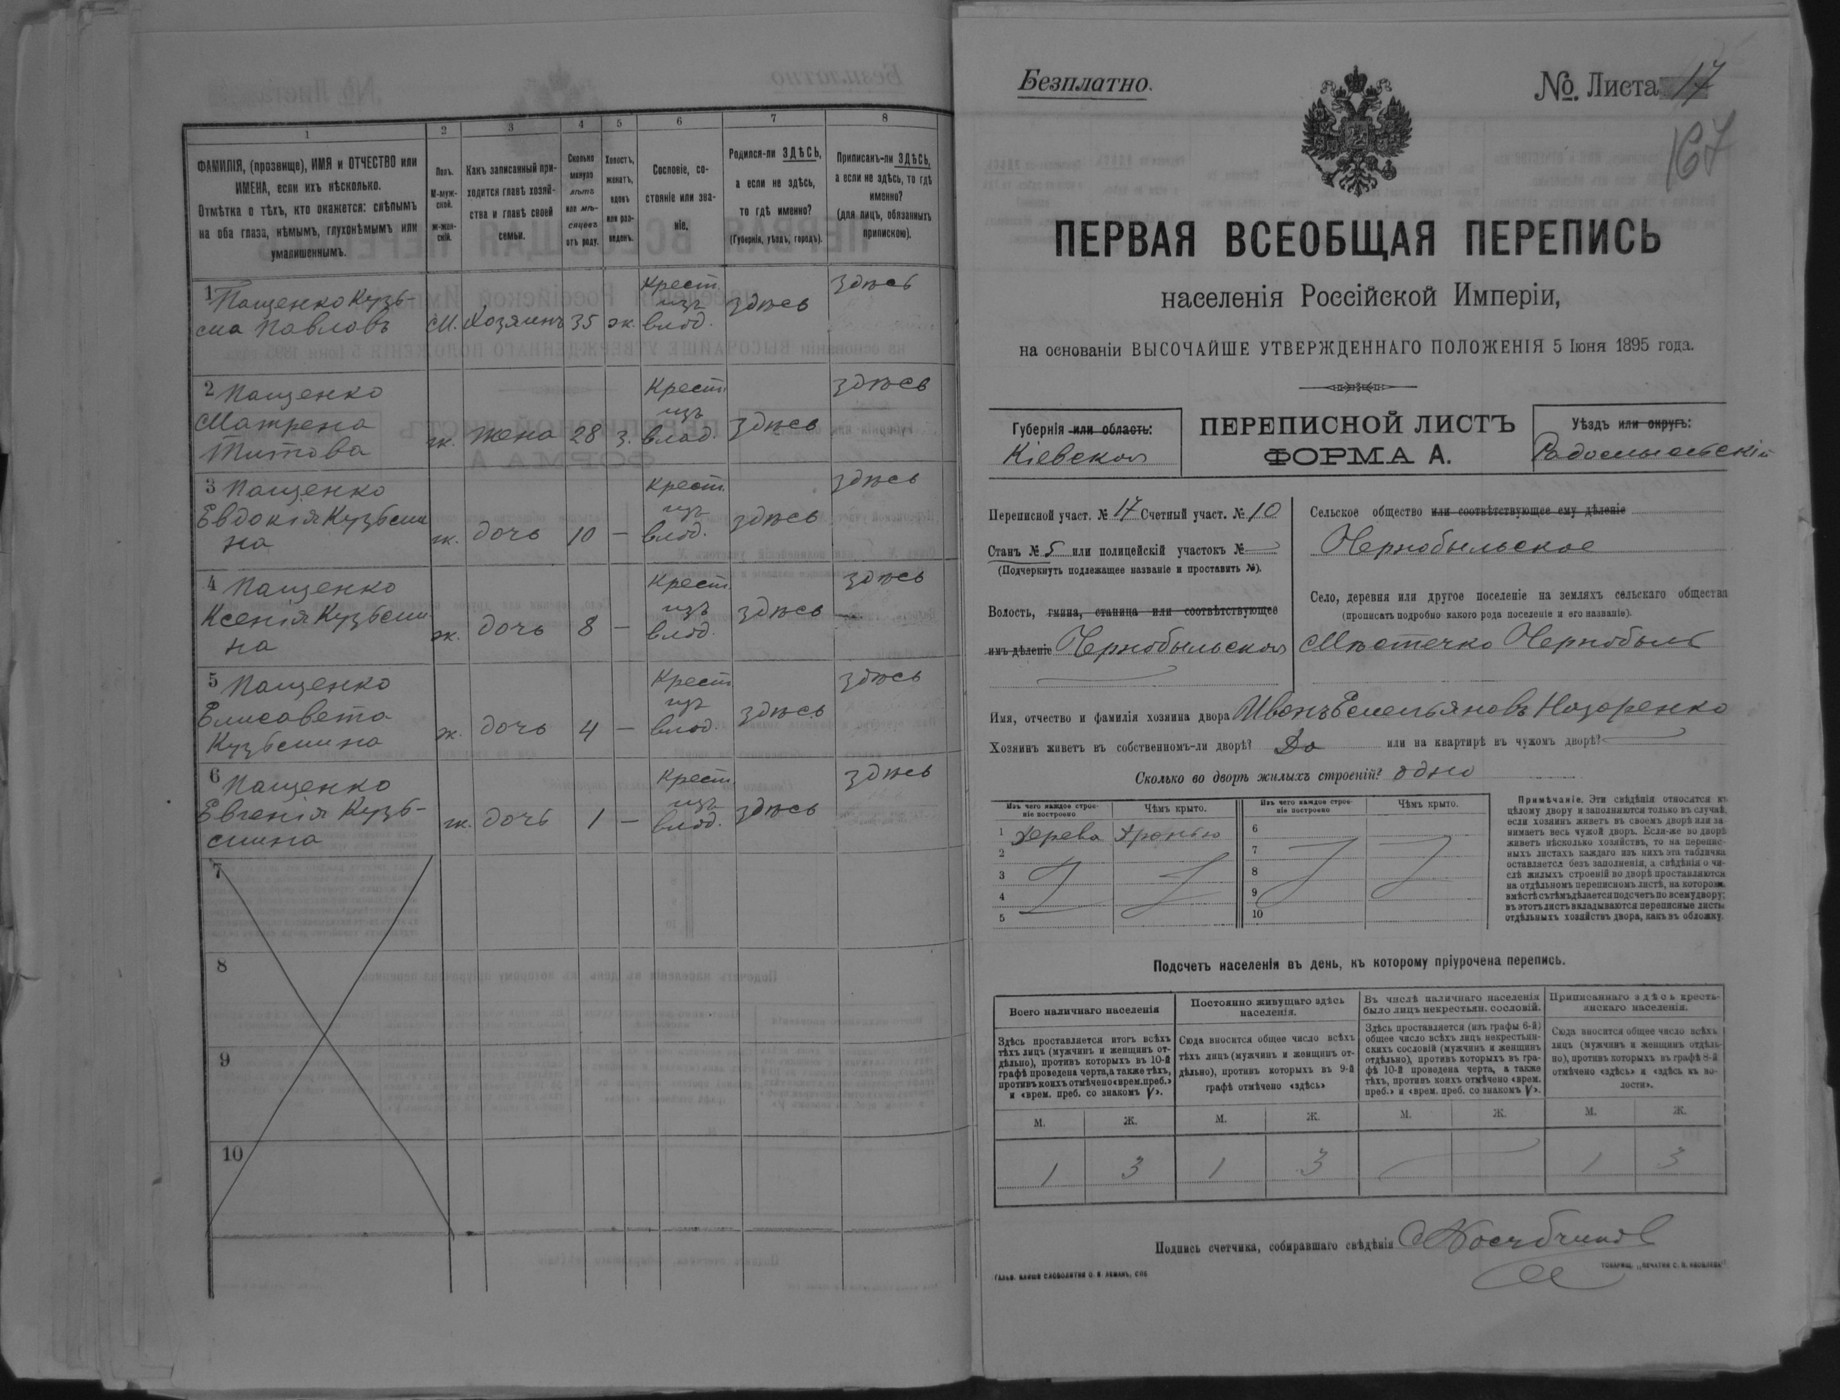 1
2
3
4
5
6
7
8
ФАМИЛІЯ, (прозвище), ИМЯ и ОТЧЕСТВО или
ИМЕНА, если ихъ нѣсколько.
Отмѣтка о тѣхъ, кто окажется: слѣпымъ
на оба глаза, нѣмымъ, глухонѣмымъ или
умалишеннымъ.
Полъ.
М-муж-
ской.
Ж-жен-
скій.
Какъ записанный при-
ходится главѣ хозяй-
ства и главѣ своей
семьи.
Сколько
минуло
лѣтъ
или мѣ-
сяцевъ
отъ роду.
Холостъ,
женатъ,
вдовъ
или раз-
веденъ.
Сословіе, со-
стояніе или зва-
ніе.
Родился-ли ЗДѢСЬ,
а если не здѣсь,
то гдѣ именно?
(Губернія, уѣздъ, городъ).
Приписанъ-ли ЗДѢСЬ,
а если не здѣсь, то гдѣ
именно?
(для лицъ, обязанныхъ
припискою).
1 Пащенко Кузь-
сма Павловъ
М. Хозяинъ 35 ж.
Крест.
изъ
влад.
здѣсь
здѣсь
2 Пащенко
Матрена
Титова
ж. жена 28 з.
Крест.
изъ
влад.
здѣсь
здѣсь
3 Пащенко
Евдокія Кузьми
на
ж. дочь 10 —
Крест.
изъ
влад.
здѣсь
здѣсь
4 Пащенко
Ксенія Кузьми
на
ж. дочь 8 —
Крест.
изъ
влад.
здѣсь
здѣсь
5 Пащенко
Елисавета
Кузьмина
ж. дочь 4 —
Крест.
изъ
влад.
здѣсь
здѣсь
6 Пащенко
Евгенія Кузь-
мина
ж. дочь 1 —
Крест.
изъ
влад.
здѣсь
здѣсь
7
8
9
10
Безплатно.
№. Листа 17
167
ПЕРВАЯ ВСЕОБЩАЯ ПЕРЕПИСЬ
населенія Россійской Имперіи,
на основаніи ВЫСОЧАЙШЕ УТВЕРЖДЕННАГО ПОЛОЖЕНІЯ 5 Іюня 1895 года.
Губернія или область:
Кіевская
ПЕРЕПИСНОЙ ЛИСТЪ
ФОРМА А.
Уѣздъ или округъ:
Радомысльскій
Переписной участ. № 17 Счетный участ. № 10
Станъ № 5 или полицейскій участокъ №
(Подчеркнуть подлежащее названіе и проставить №).
Волость, гмина, станица или соотвѣтствующее
имъ дѣленіе Чернобыльская
Сельское общество или соотвѣтствующее ему дѣленіе
Чернобыльское
Село, деревня или другое поселеніе на земляхъ сельскаго общества
(прописать подробно какого рода поселеніе и его названіе).
Мѣстечко Чернобыль
Имя, отчество и фамилія хозяина двора Иванъ Емельяновъ Назаренко
Хозяинъ живетъ въ собственномъ-ли дворѣ? Да или на квартирѣ въ чужомъ дворѣ?
Сколько во дворѣ жилыхъ строеній? одно
Изъ чего каждое строе-
ніе построено
Чѣмъ крыто.
Изъ чего каждое строе-
ніе построено
Чѣмъ крыто.
1 Дерева Дранью
2
3
4
5
6
7
8
9
10
Примѣчаніе. Эти свѣдѣнія относятся къ
цѣлому двору и заполняются только въ случаѣ,
если хозяинъ живетъ въ своемъ дворѣ или за-
нимаетъ весь чужой дворъ. Если-же во дворѣ
живетъ нѣсколько хозяйствъ, то на перепис-
ныхъ листахъ каждаго изъ нихъ эта табличка
оставляется безъ заполненія, а свѣдѣнія о чи-
слѣ жилыхъ строеній во дворѣ проставляются
на отдѣльномъ переписномъ листѣ, на которомъ
вмѣстѣ съ тѣмъ дѣлается подсчетъ по всему двору;
въ этотъ листъ вкладываются переписные листы
отдѣльныхъ хозяйствъ двора, какъ въ обложку.
Подсчетъ населенія въ день, къ которому пріурочена перепись.
Всего наличнаго населенія
Здѣсь проставляется итогъ всѣхъ
тѣхъ лицъ (мужчинъ и женщинъ от-
дѣльно), противъ которыхъ въ 10-й
графѣ проведена черта, а также тѣхъ,
противъ коихъ отмѣчено «врем. преб.»
и «врем. преб. со знакомъ V».
Постоянно живущаго здѣсь
населенія.
Сюда вносится общее число всѣхъ
тѣхъ лицъ (мужчинъ и женщинъ от-
дѣльно), противъ которыхъ въ 9-й
графѣ отмѣчено «здѣсь»
Въ числѣ наличнаго населенія
было лицъ некрестьян. сословій.
Здѣсь проставляется (изъ графы 6-й)
общее число всѣхъ лицъ некрестьян-
скихъ сословій (мужчинъ и женщинъ
отдѣльно), противъ которыхъ въ гра-
фѣ 10-й проведена черта, а также
тѣхъ, противъ коихъ отмѣчено «врем.
преб.» и «врем. преб. со знакомъ V».
Приписаннаго здѣсь кресть-
янскаго населенія.
Сюда вносится общее число всѣхъ
лицъ (мужчинъ и женщинъ отдѣль-
но), противъ которыхъ въ графѣ 8-й
отмѣчено «здѣсь» и «здѣсь въ во-
лости».
М. Ж. М. Ж. М. Ж. М. Ж.
1 3 1 3 — 1 3
Подпись счетчика, собиравшаго свѣдѣнія